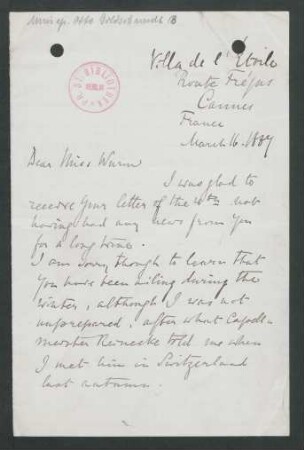 Villa de l'Etoile
Route Fréjus
Cannes
France
March 16. 1889
Dear Miss Wurm
I was glad to
receive your letter of the 4th not
having had any news from you
for a long time.
I am sorry though to learn that
you have been ailing during the
winter, although I was not
unprepared, after what Capell-
meister Reinecke told me when
I met him in Switzerland
last autumn.